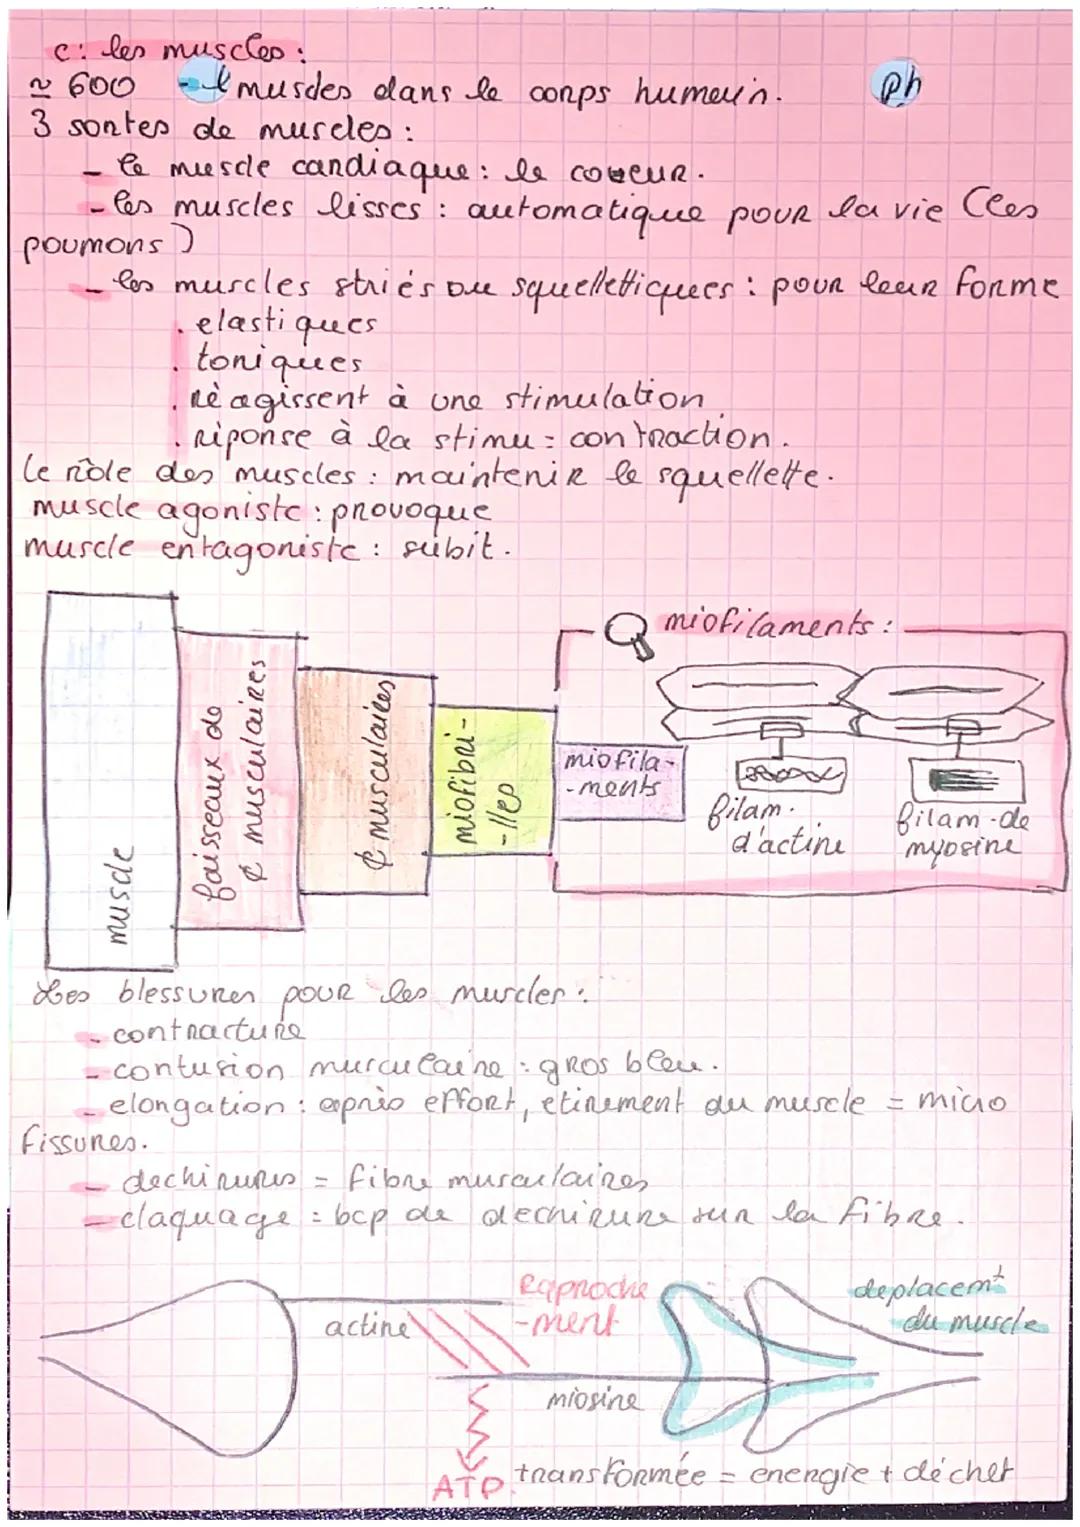 c: les muscles :
≈ 600 muscles dans le corps humain.
ph
3 sortes de muscles :
- le muscle cardiaque : le coeur.
- les muscles lisses : automatique pour la vie (les
poumons)
- les muscles striés ou squellettiques : pour leur forme
. elastiques
. toniques
. réagissent à une stimulation
. réponse à la stimu = contraction.
le rôle des muscles : maintenir le squellette.
muscle agoniste : provoque
muscle entagoniste : subit.
muscle
faisseaux de
¢ musculaires
¢ musculaires
miofibri-
-lles
miofila-
-ments
miofilaments :
filam.
d'actine
filam. de
myosine
Les blessures pour les muscles :
- contracture
- contusion musculaire : gros bleu.
- elongation : après effort, etirement du muscle = micro
fissures.
- dechirures = fibre musculaires
- claquage = bcp de dechirure sur la fibre.
actine
Raproche
-ment
miosine
deplacemt
du muscle
ATP. transformée = energie + déchet